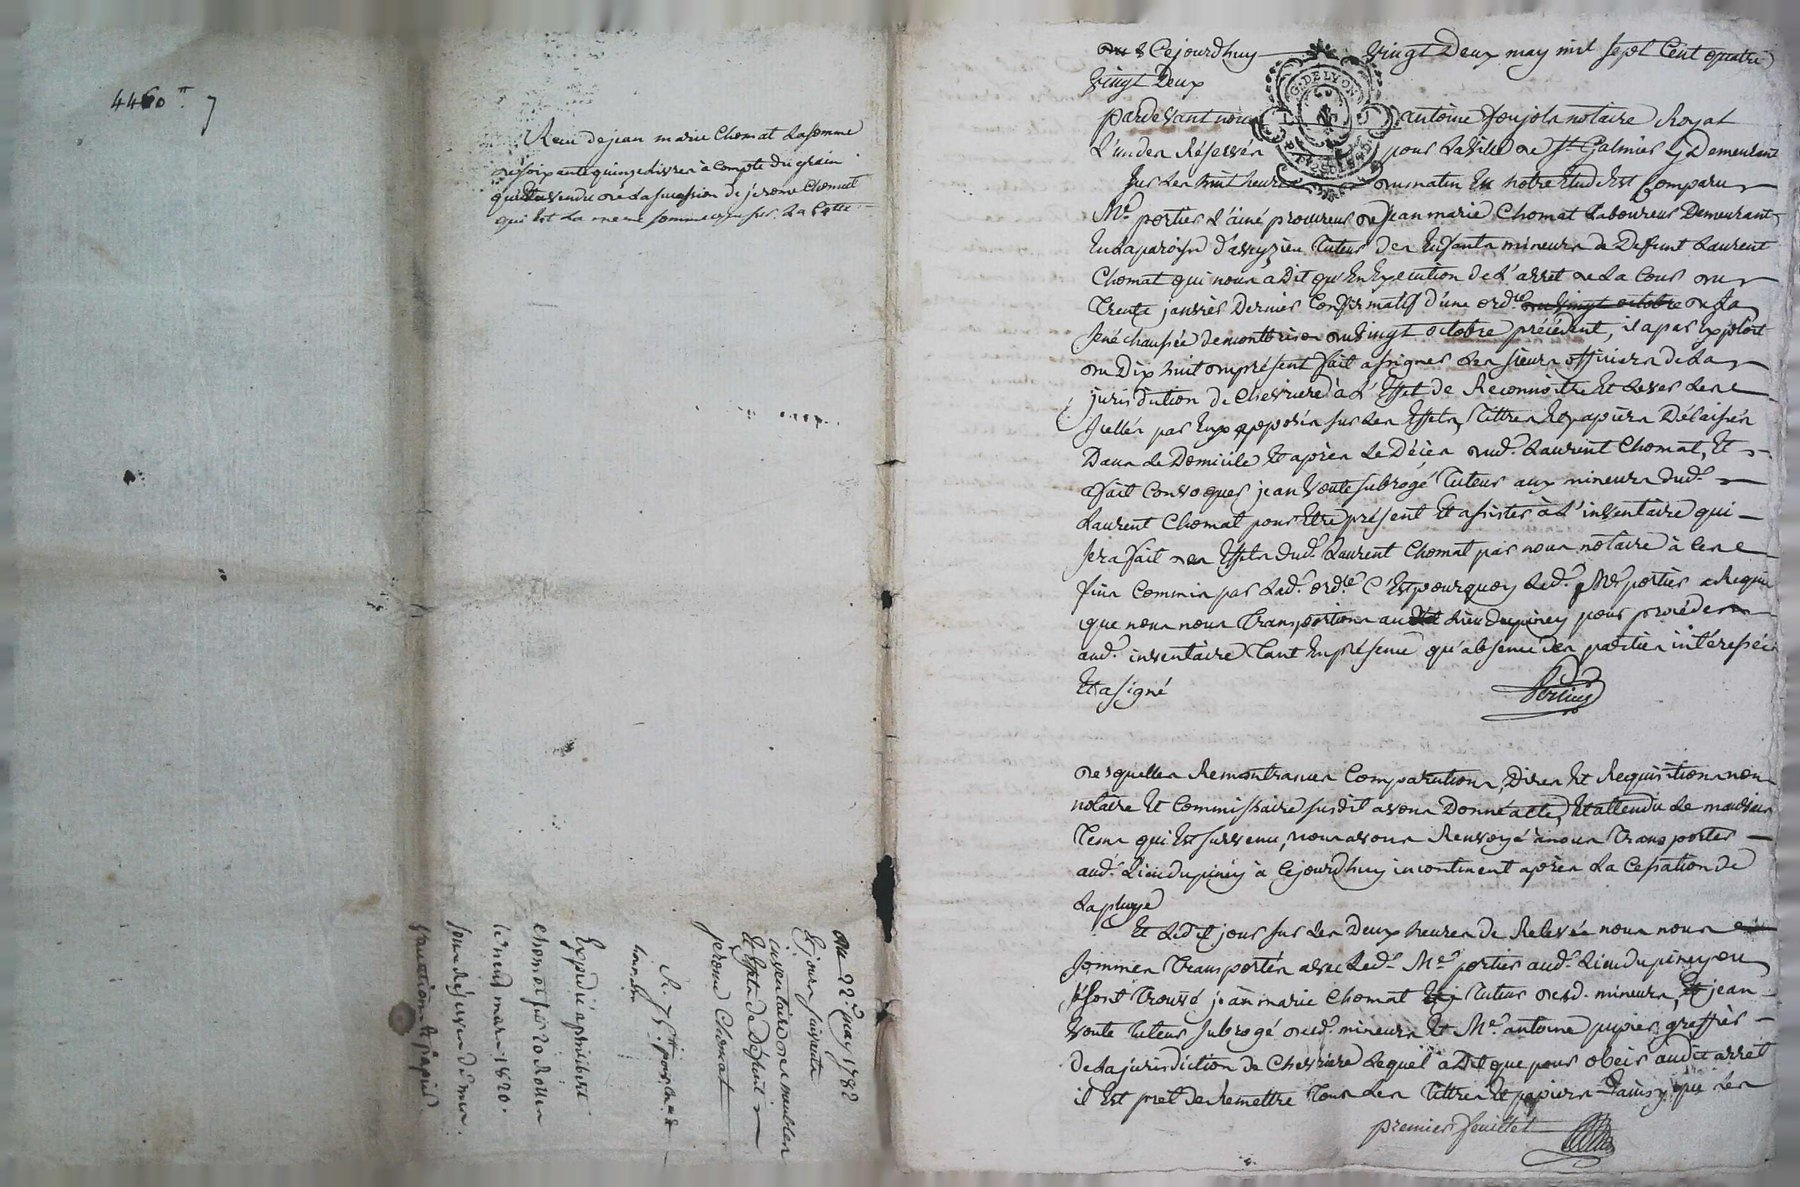 4460 ₶ 7
Reçu de jean marie Chomat la somme
de soixante quinze livres à compte du grain
qui Est la meme somme
du 22e. may 1782
& jours suivants
inventaire de meubles
& effets de Défunt
jerome Chomat
Expédié
chomat 20 Rolles
le neuf mars 1820.
G. DE LYON
Cejourdhuy vingt Deux may mil sept Cent quatre
vingt Deux
pardevant nous antoine notaire Royal
L'un des Réservés pour la ville de St Galmier y Demeurant
sur les huit heures du matin En notre Etude Est Comparu
Me. portier L'ainé procureur de jean marie Chomat Laboureur Demeurant
En la paroisse d'aveyzieu Tuteur des Enfants mineurs de Defunt Laurent
Chomat qui nous a Dit qu'En Execution de L'arret de La Cour du
Trente janvier Dernier Confirmatif d'une ordce. du vingt octobre de La
sénéchaussée de montbrison du vingt octobre précédent, il a par Exploit
du Dix huit du présent fait assigner Les sieurs officiers de La
jurisdiction de Chevriere à L'Effet de Reconnoitre Et Lever Les
scellés par Eux apposés sur Les Effets, Tittres Et papiers Délaissés
Dans Le Domicile Et après Le Décès dud. Laurent Chomat, Et
a fait Convoquer jean Voute subrogé Tuteur aux mineurs dud.
Laurent Chomat pour Etre présent Et assister à L'inventaire qui
sera fait des Effets dud. Laurent Chomat par nous notaire à Ces
fins Commis par Lad. ordce. C'Est pourquoy Led. Me. portier a Requis
que nous nous Transportions au Lieu dupiney pour procéder
aud. inventaire Tant En présence qu'absence des parties intéressées
Et a signé
Portier
desquelles Remontrances Comparutions, Dires Et Requisitions nous
notaire Et Commissaire susdit avons Donné acte, Et attendu Le mauvais
Tems qui Est survenu, nous avons Renvoyé à nous Transporter
aud. Lieu dupiney à Cejourdhuy incontinent après La Cessation de
La pluye
Et Ledit jour sur Les Deux heures de Relevée nous nous
sommes Transportés avec Led. Me. portier aud. Lieu dupiney ou
s'est Trouvé jean marie Chomat Tuteur desd. mineurs, Et jean
Voute Tuteur subrogé desd. mineurs Et Me. antoine pupier greffier
de La jurisdiction de Chevriere Lequel a Dit que pour obeir audit arrêt
il Est pret de Remettre Tous Les Tittres Et papiers ainsy que Les
premier feuillet